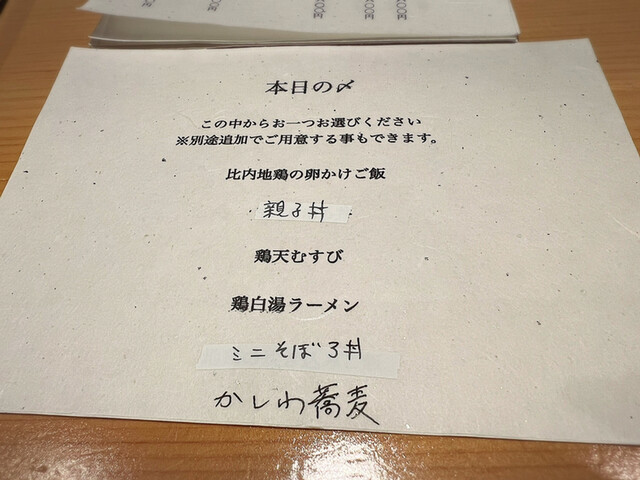 本日の〆
この中からお一つお選びください
※別途追加でご用意する事もできます。
比内地鶏の卵かけご飯
親子丼
鶏天むすび
鶏白湯ラーメン
ミニそぼろ丼
かしわ蕎麦